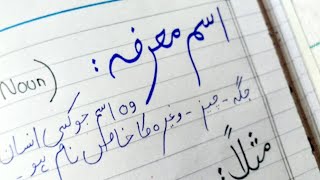 اسم معرفہ: Noun)
وہ اسم جو کسی انسان
جگہ - چیز - وغیرہ کا خاص نام ہو -
مثلاً: